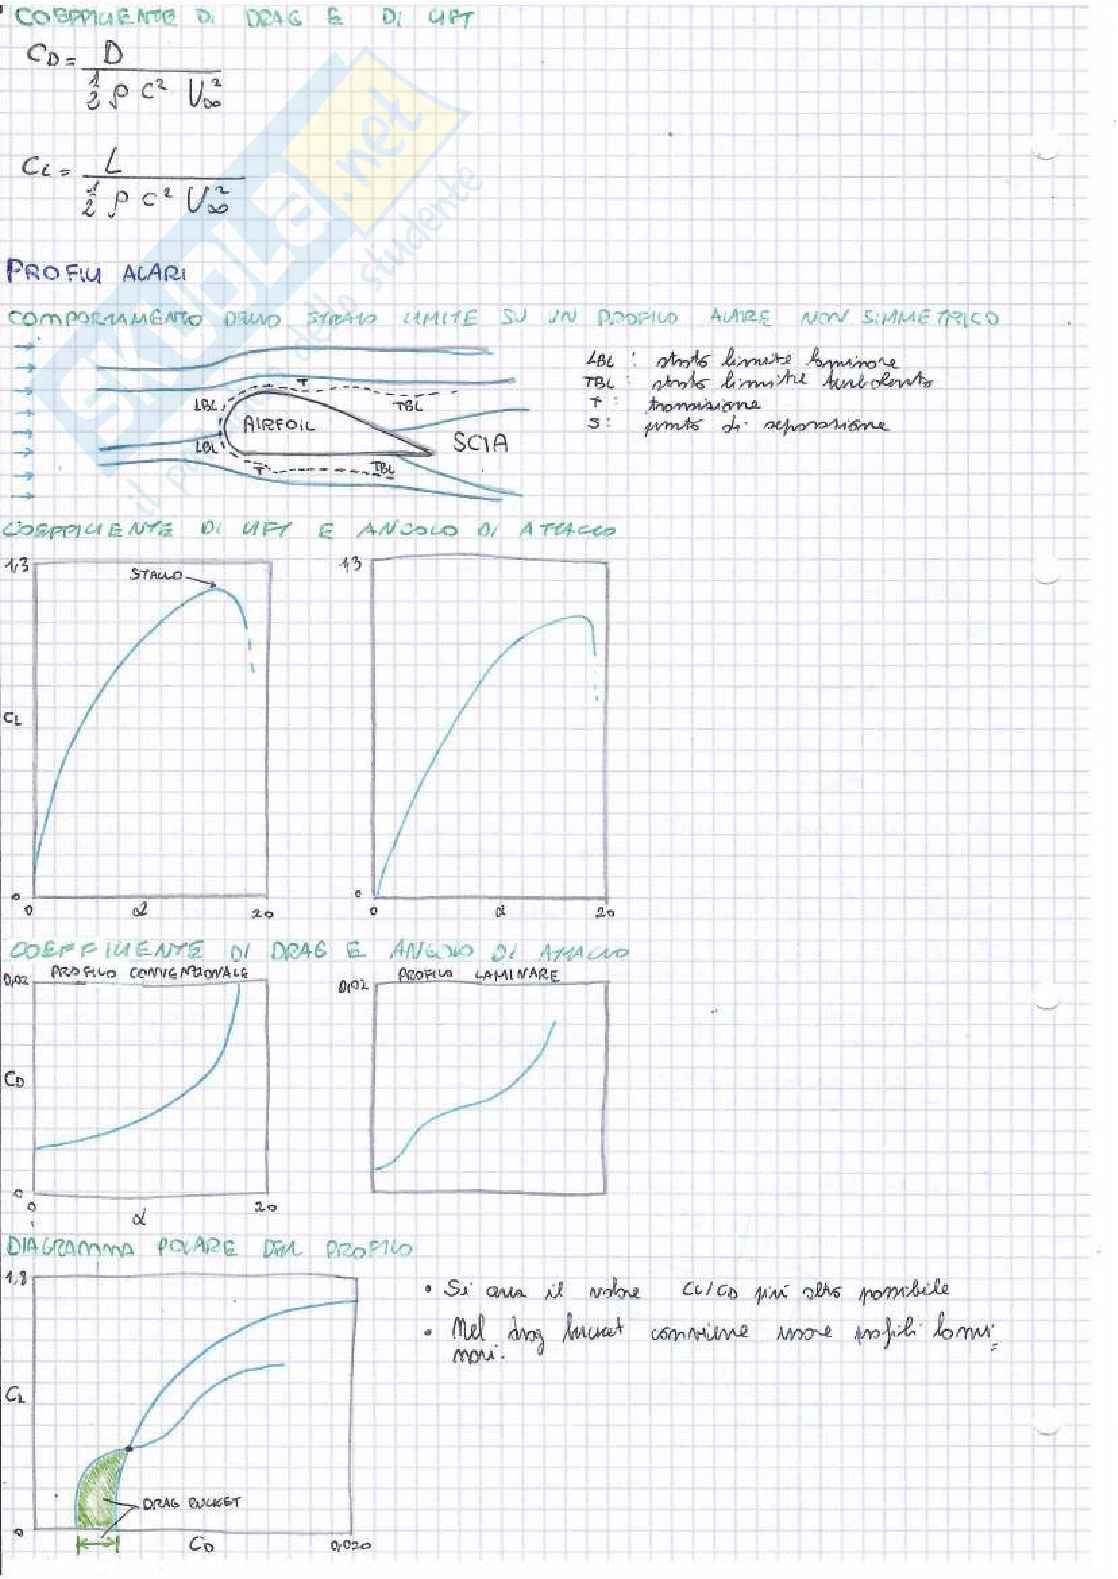 COEFFICIENTE DI DRAG E DI LIFT
CD = D / ½ ρ C² U∞²
CL = L / ½ ρ C² U∞²
SKUOLA.net
il paradiso dello studente
PROFILI ALARI
COMPORTAMENTO DELLO STRATO LIMITE SU UN PROFILO ALARE NON SIMMETRICO
LBL : strato limite laminare
TBL : strato limite turbolento
T : transizione
S : punto di separazione
T
LBL
TBL
AIRFOIL
SCIA
LBL
T
TBL
COEFFICIENTE DI LIFT E ANGOLO DI ATTACCO
1,3
STALLO
CL
0
0 α 20
1,3
0
0 α 20
COEFFICIENTE DI DRAG E ANGOLO DI ATTACCO
PROFILO CONVENZIONALE
0,02
CD
0
0 α 20
PROFILO LAMINARE
0,02
DIAGRAMMA POLARE DEL PROFILO
1,3
CL
0
DRAG BUCKET
CD
0,020
• Si cerca il valore CL/CD più alto possibile
• Nel drag bucket conviene usare profili lami-
nari.